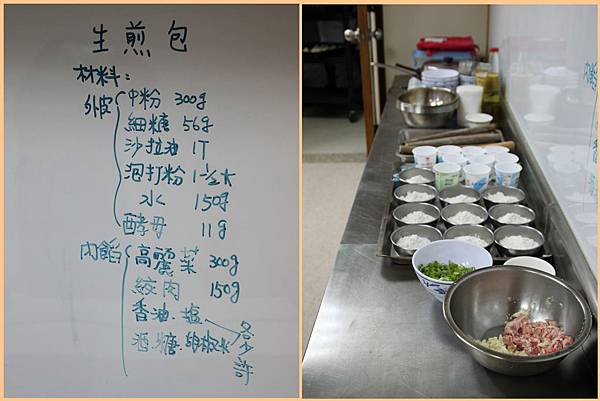 生煎包
材料:
外皮
中粉 300g
細糖 56g
沙拉油 1T
泡打粉 1-½大
水 150g
酵母 11g
內餡
高麗菜 300g
絞肉 150g
香油.塩
酒.糖.胡椒
各少許